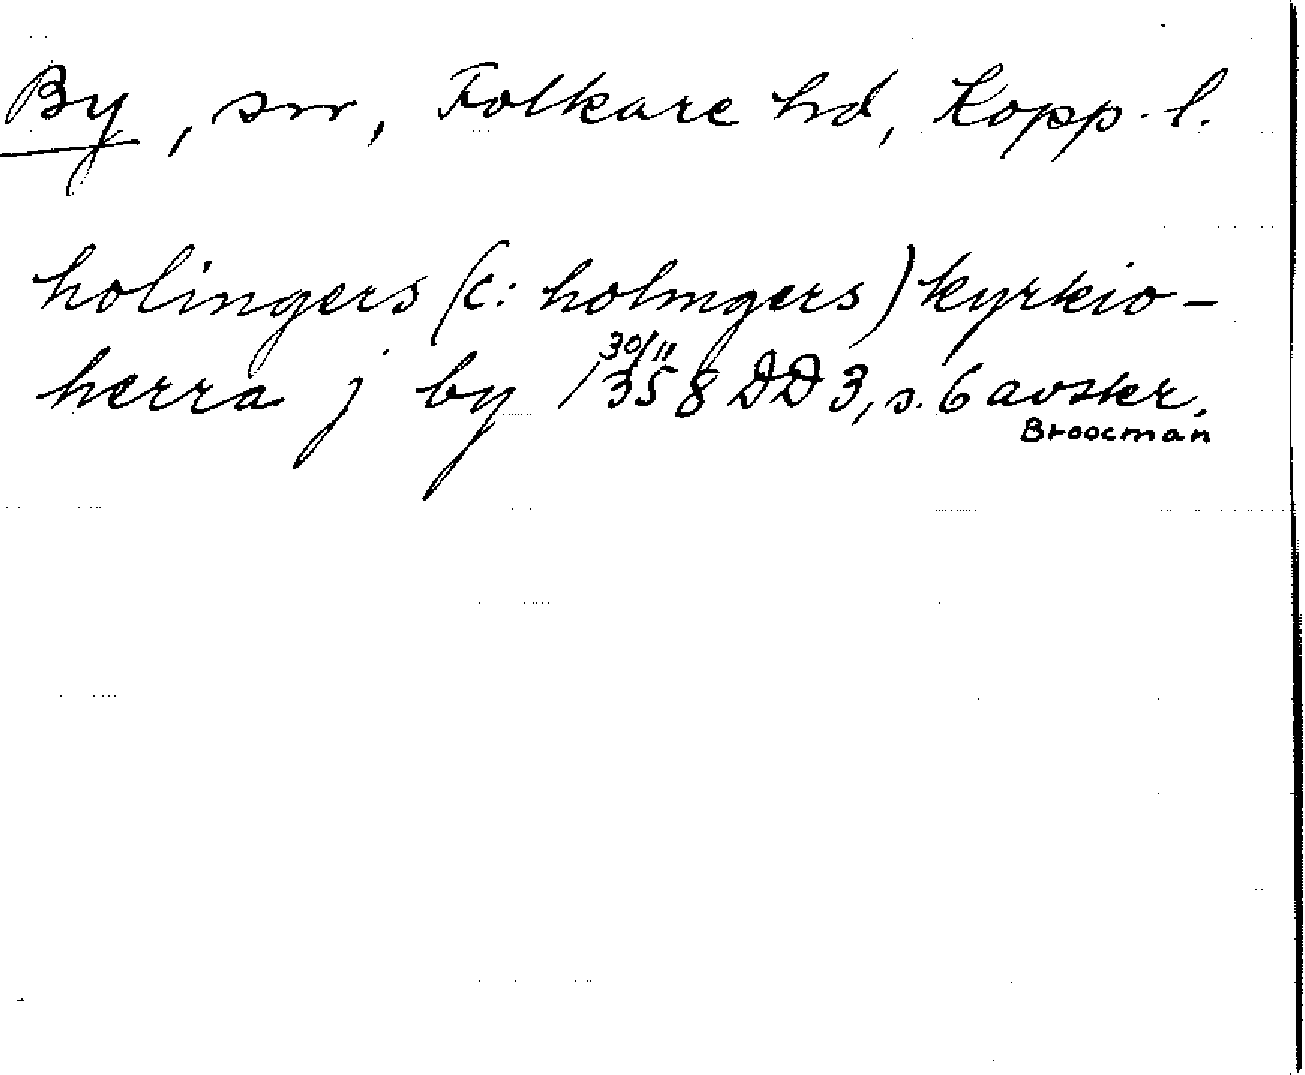 By, sn, Folkare hd, Kopp. l.
holingers (ɔ: holmgers) kyrkio-
herra j by 30/11 1358 DD 3, s. 6 avskr.
Broocman